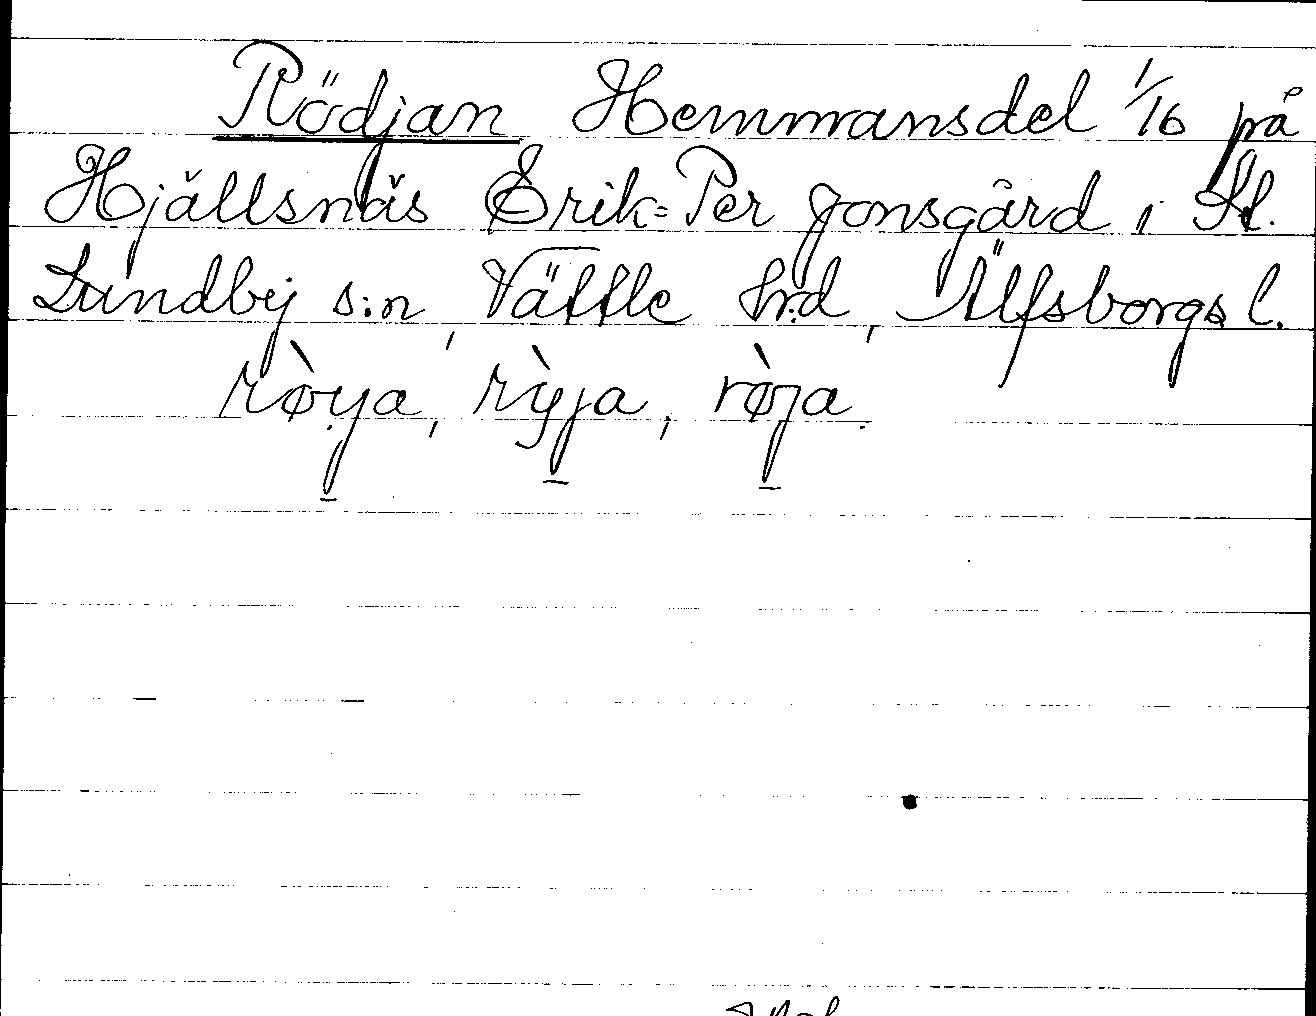 Rödjan Hemmansdel 1/16 på
Hjällsnäs Erik=Per Jonsgård i St.
Lundby s:n, Vättle hrd, Älfsborgs l.